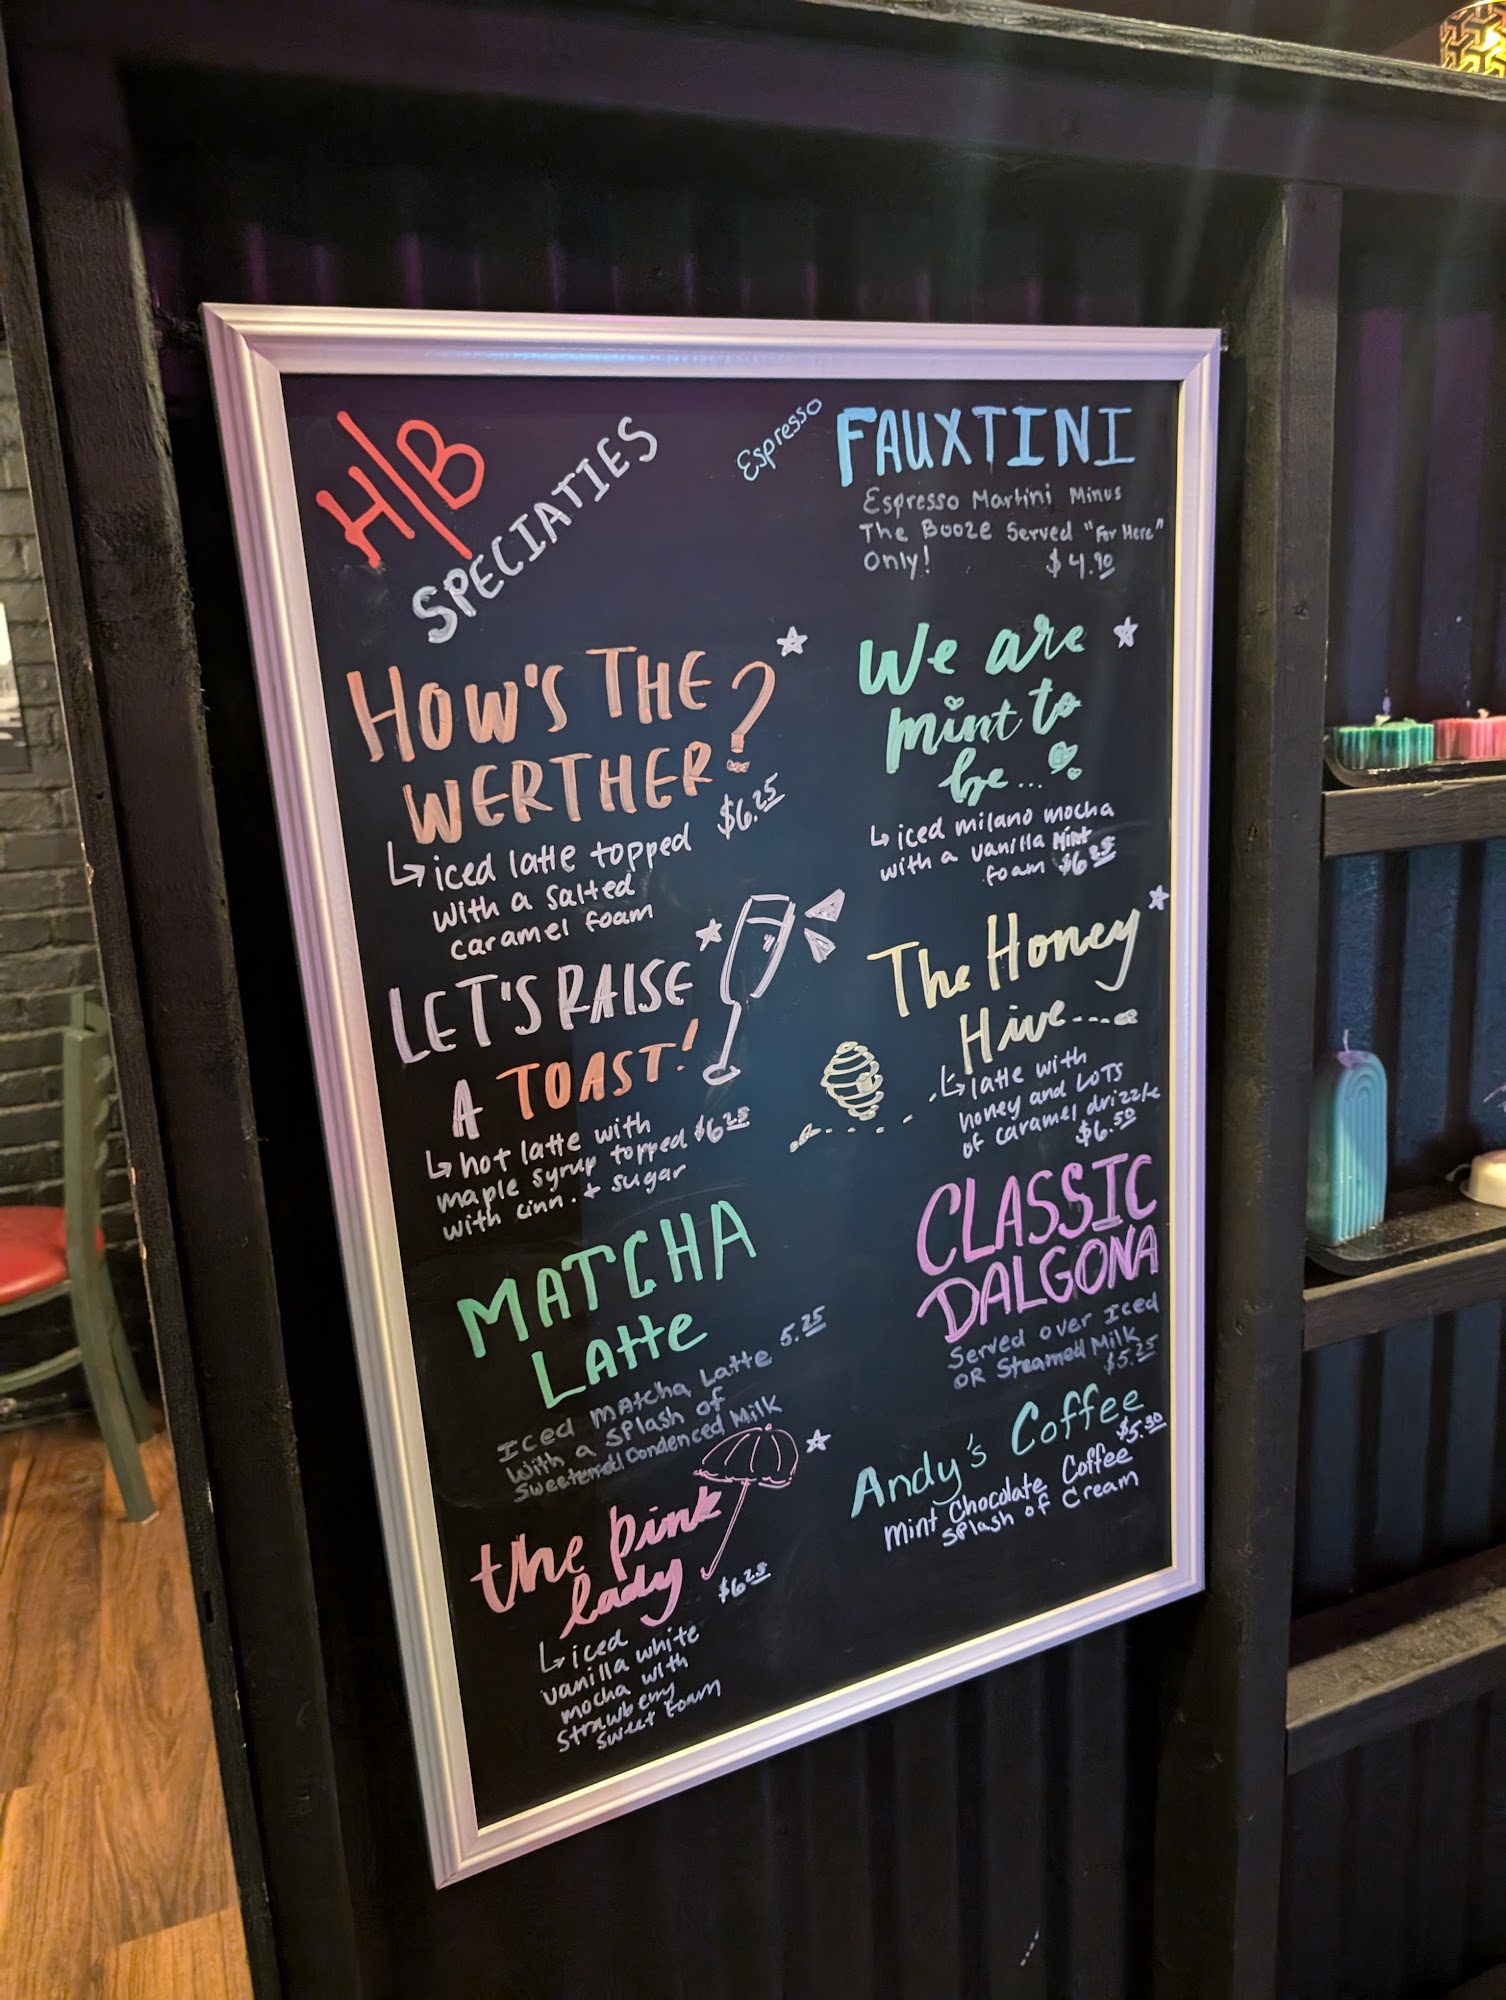 H|B
SPECIATIES
HOW'S THE
WERTHER?
$6.25
↳ iced latte topped
with a salted
caramel foam
LET'S RAISE
A TOAST!
↳ hot latte with
maple syrup topped $6.25
with cinn. + sugar
MATCHA
LATTE
Iced Matcha Latte 5.25
With a splash of
Sweetened Condenced Milk
the pink
lady
$6.25
↳ iced
vanilla white
mocha with
strawberry
sweet foam
Espresso
FAUXTINI
Espresso Martini Minus
The Booze Served "For Here"
Only! $4.90
We are
mint to
be...
↳ iced milano mocha
with a vanilla Mint
foam
The Honey
Hive
↳ latte with
honey and LOTS
of caramel drizzle
$6.50
CLASSIC
DALGONA
Served over Iced
OR Steamed Milk
$5.25
Andy's Coffee
$5.30
Mint Chocolate Coffee
Splash of Cream